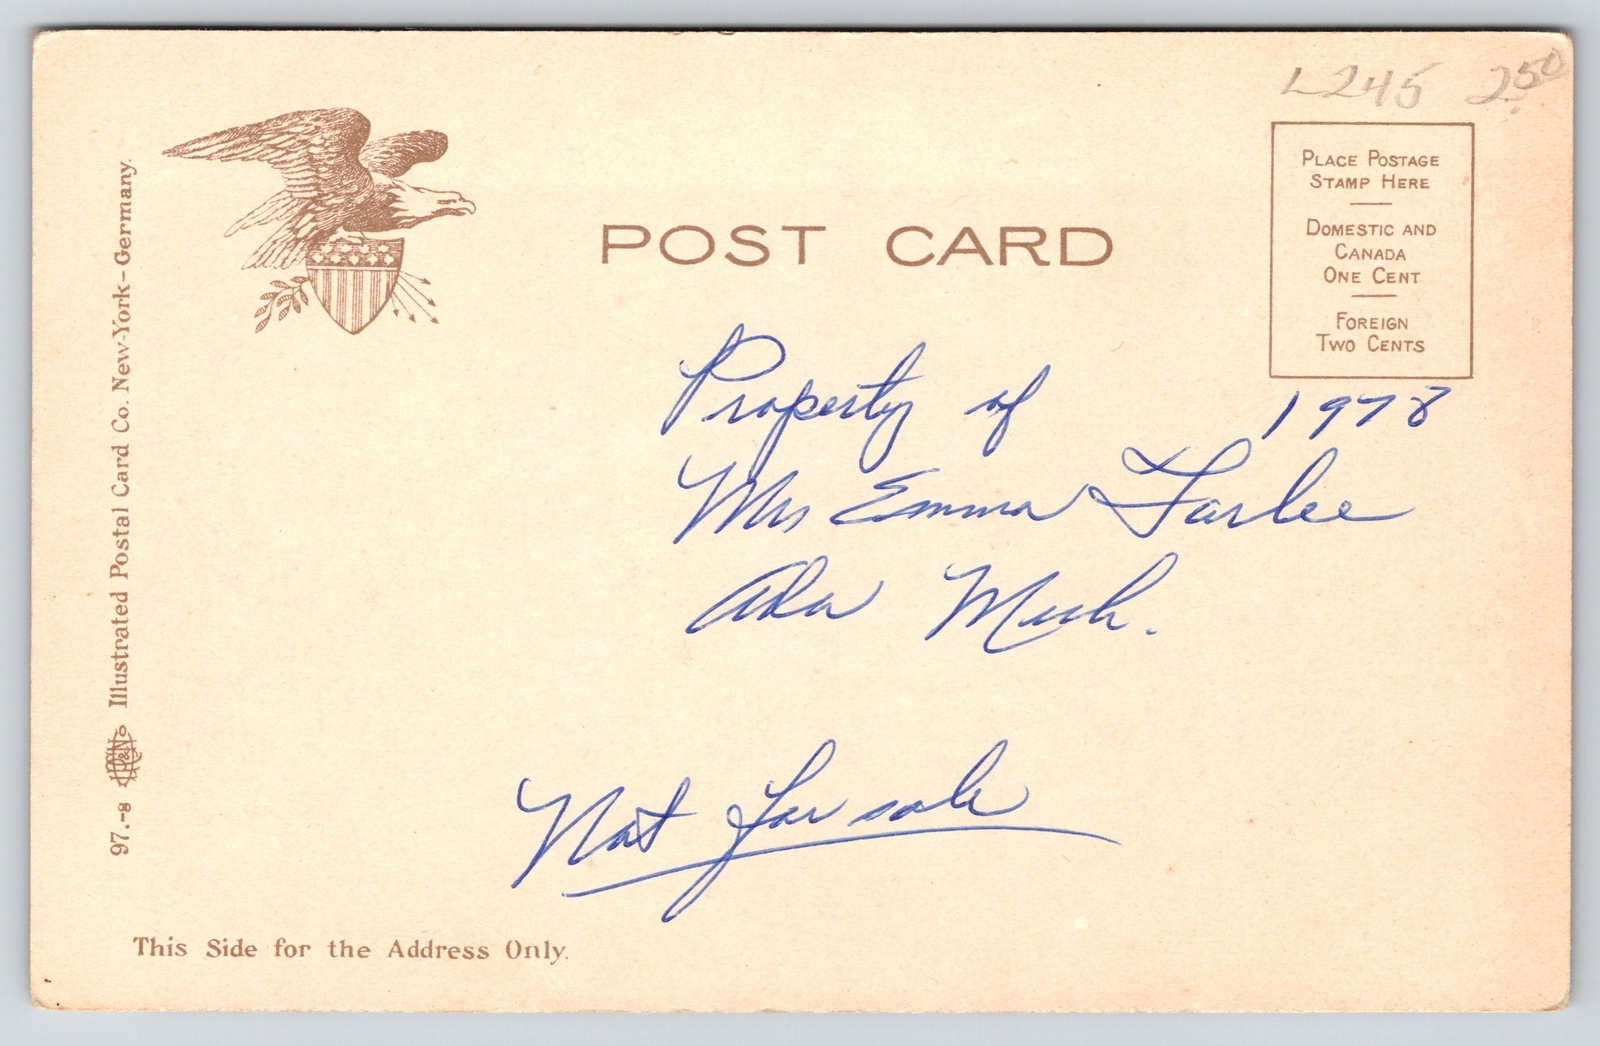 L245 2.50
PLACE POSTAGE
STAMP HERE
DOMESTIC AND
CANADA
ONE CENT
FOREIGN
TWO CENTS
POST CARD
97.-8 Illustrated Postal Card Co. New-York-Germany.
Property of 1978
Mrs Emma Farlee
Ada Mich.
Not for sale
This Side for the Address Only.